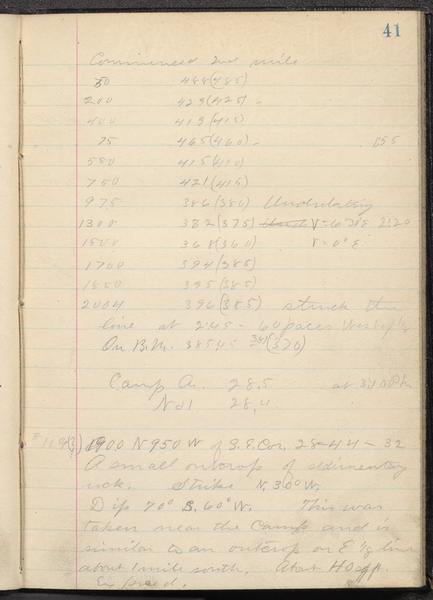 41
Commenced 2nd mile
50 488(485)
200 429(425)
400 419(415)
75 465(460) 155
550 415(410)
750 421(415)
975 386(380) Undulating
1300 382(375) 2:20
1500 368(360) V = 0° E
1700 394(385)
1850 395(385)
2004 396(385) struck the
line at 2:45 - 60 paces West of 1/8
On B.M. 385 45 (370)
Camp A. 28.5 at
No 1 28.4
1900 N 950 W of S.E. Cor. 28-44-32
A small outcrop of sedimentary
rock. Strike N. 30° W.
Dip 70° S. 60° W. This was
taken near the Camp and is
similar to an outcrop on E 1/8 line
about 1 mile south. About 40
Exposed.